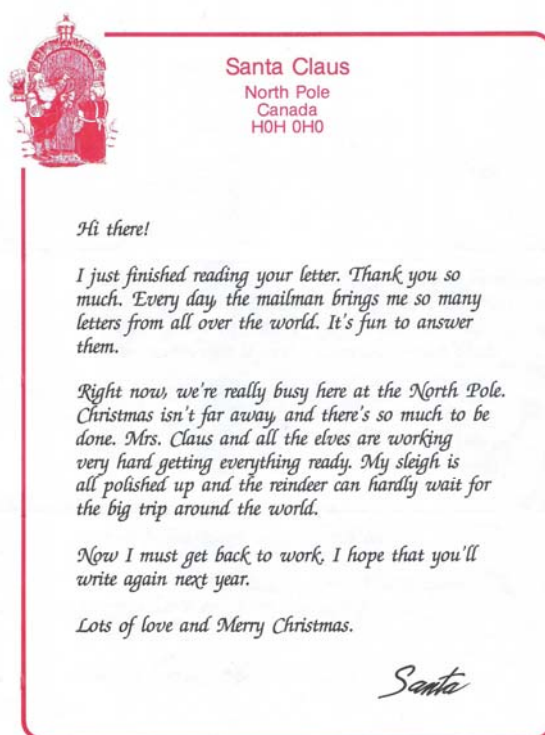 Santa Claus
North Pole
Canada
H0H 0H0
Hi there!
I just finished reading your letter. Thank you so
much. Every day, the mailman brings me so many
letters from all over the world. It's fun to answer
them.
Right now, we're really busy here at the North Pole.
Christmas isn't far away, and there's so much to be
done. Mrs. Claus and all the elves are working
very hard getting everything ready. My sleigh is
all polished up and the reindeer can hardly wait for
the big trip around the world.
Now I must get back to work. I hope that you'll
write again next year.
Lots of love and Merry Christmas.
Santa